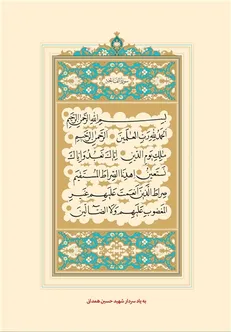 سورة الفاتحة
بِسْمِ اللَّهِ الرَّحْمَٰنِ الرَّحِيمِ
الْحَمْدُ لِلَّهِ رَبِّ الْعَالَمِينَ الرَّحْمَٰنِ الرَّحِيمِ
مَالِكِ يَوْمِ الدِّينِ إِيَّاكَ نَعْبُدُ وَإِيَّاكَ
نَسْتَعِينُ اهْدِنَا الصِّرَاطَ الْمُسْتَقِيمَ
صِرَاطَ الَّذِينَ أَنْعَمْتَ عَلَيْهِمْ غَيْرِ
الْمَغْضُوبِ عَلَيْهِمْ وَلَا الضَّالِّينَ
به یاد سردار شهید حسین همدانی